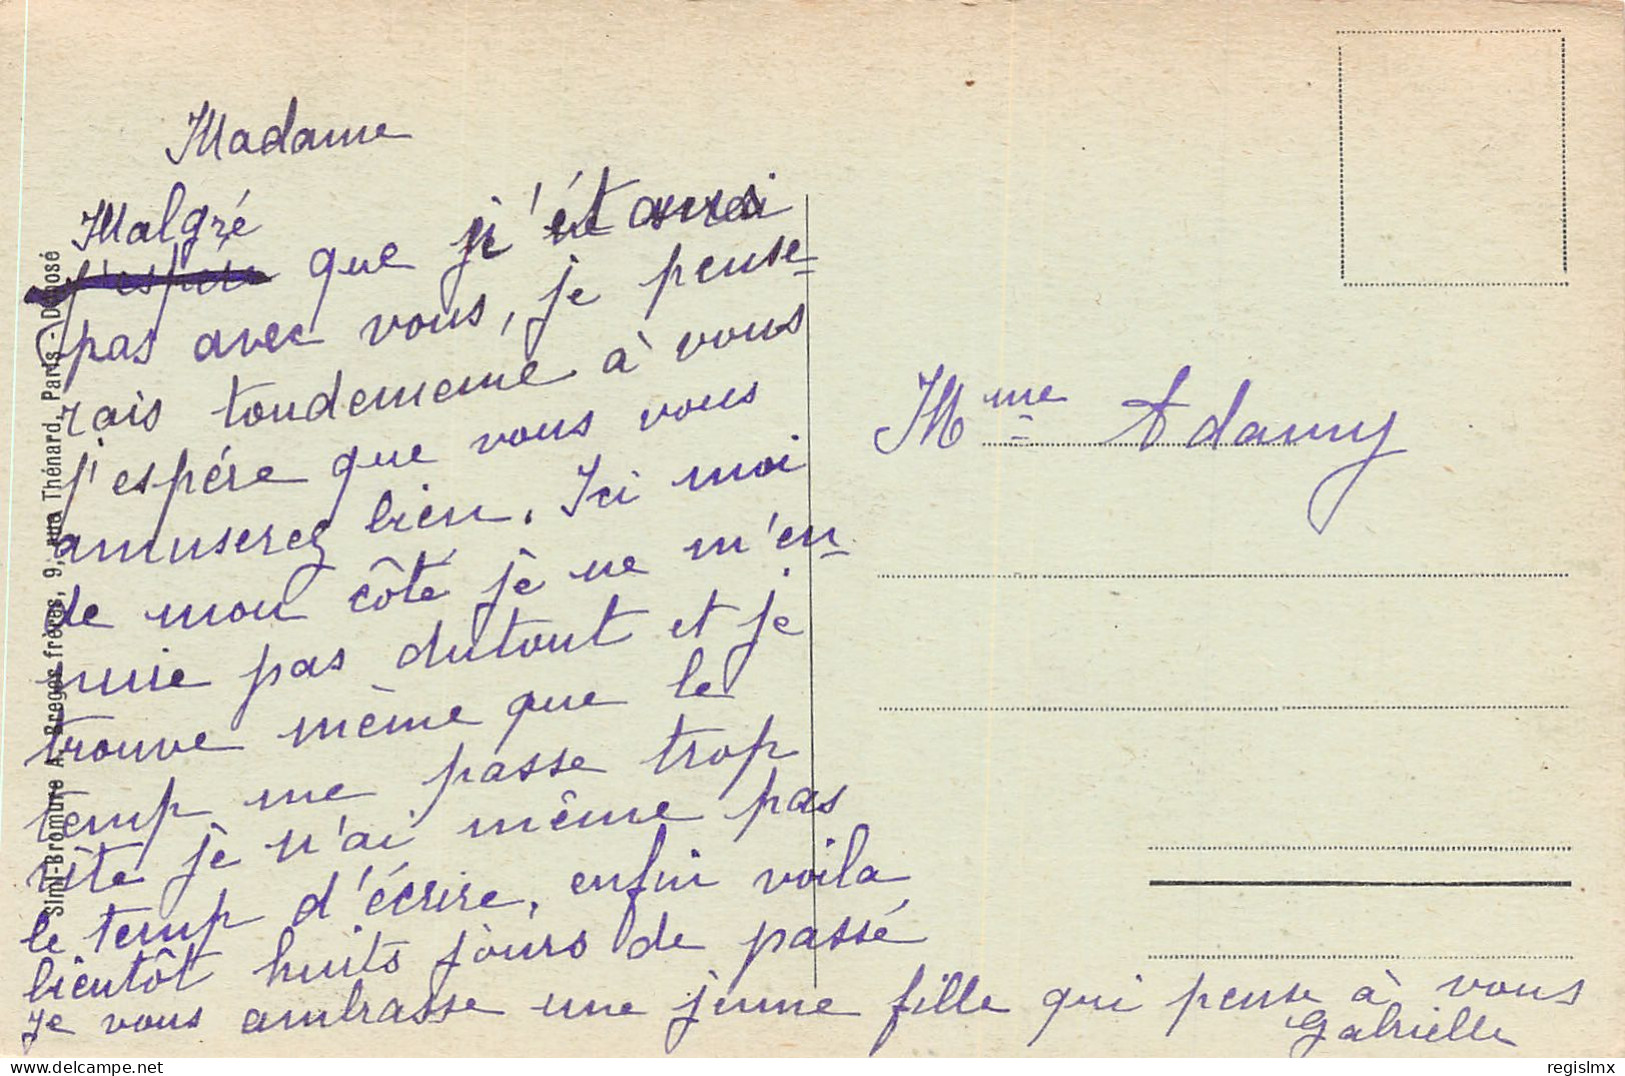 Madame
Malgré
j'espère que j'ét aurai
pas avec vous, je pense=
rais toudememe à vous
j'espére que vous vous
amuserez bien. Ici moi
de mon côté je ne m'en
nuie pas dutout et je
trouve même que le
temp me passe trop
vite je n'ai même pas
le temp d'écrire, enfin voila
bientôt huits jours de passé
Je vous ambrasse une jeune fille qui pense à vous
Gabrielle
Mme Adamy
Simi-Bromure A. Breger frères, 9, rue Thénard, Paris - Déposé
delcampe.net
regislmx